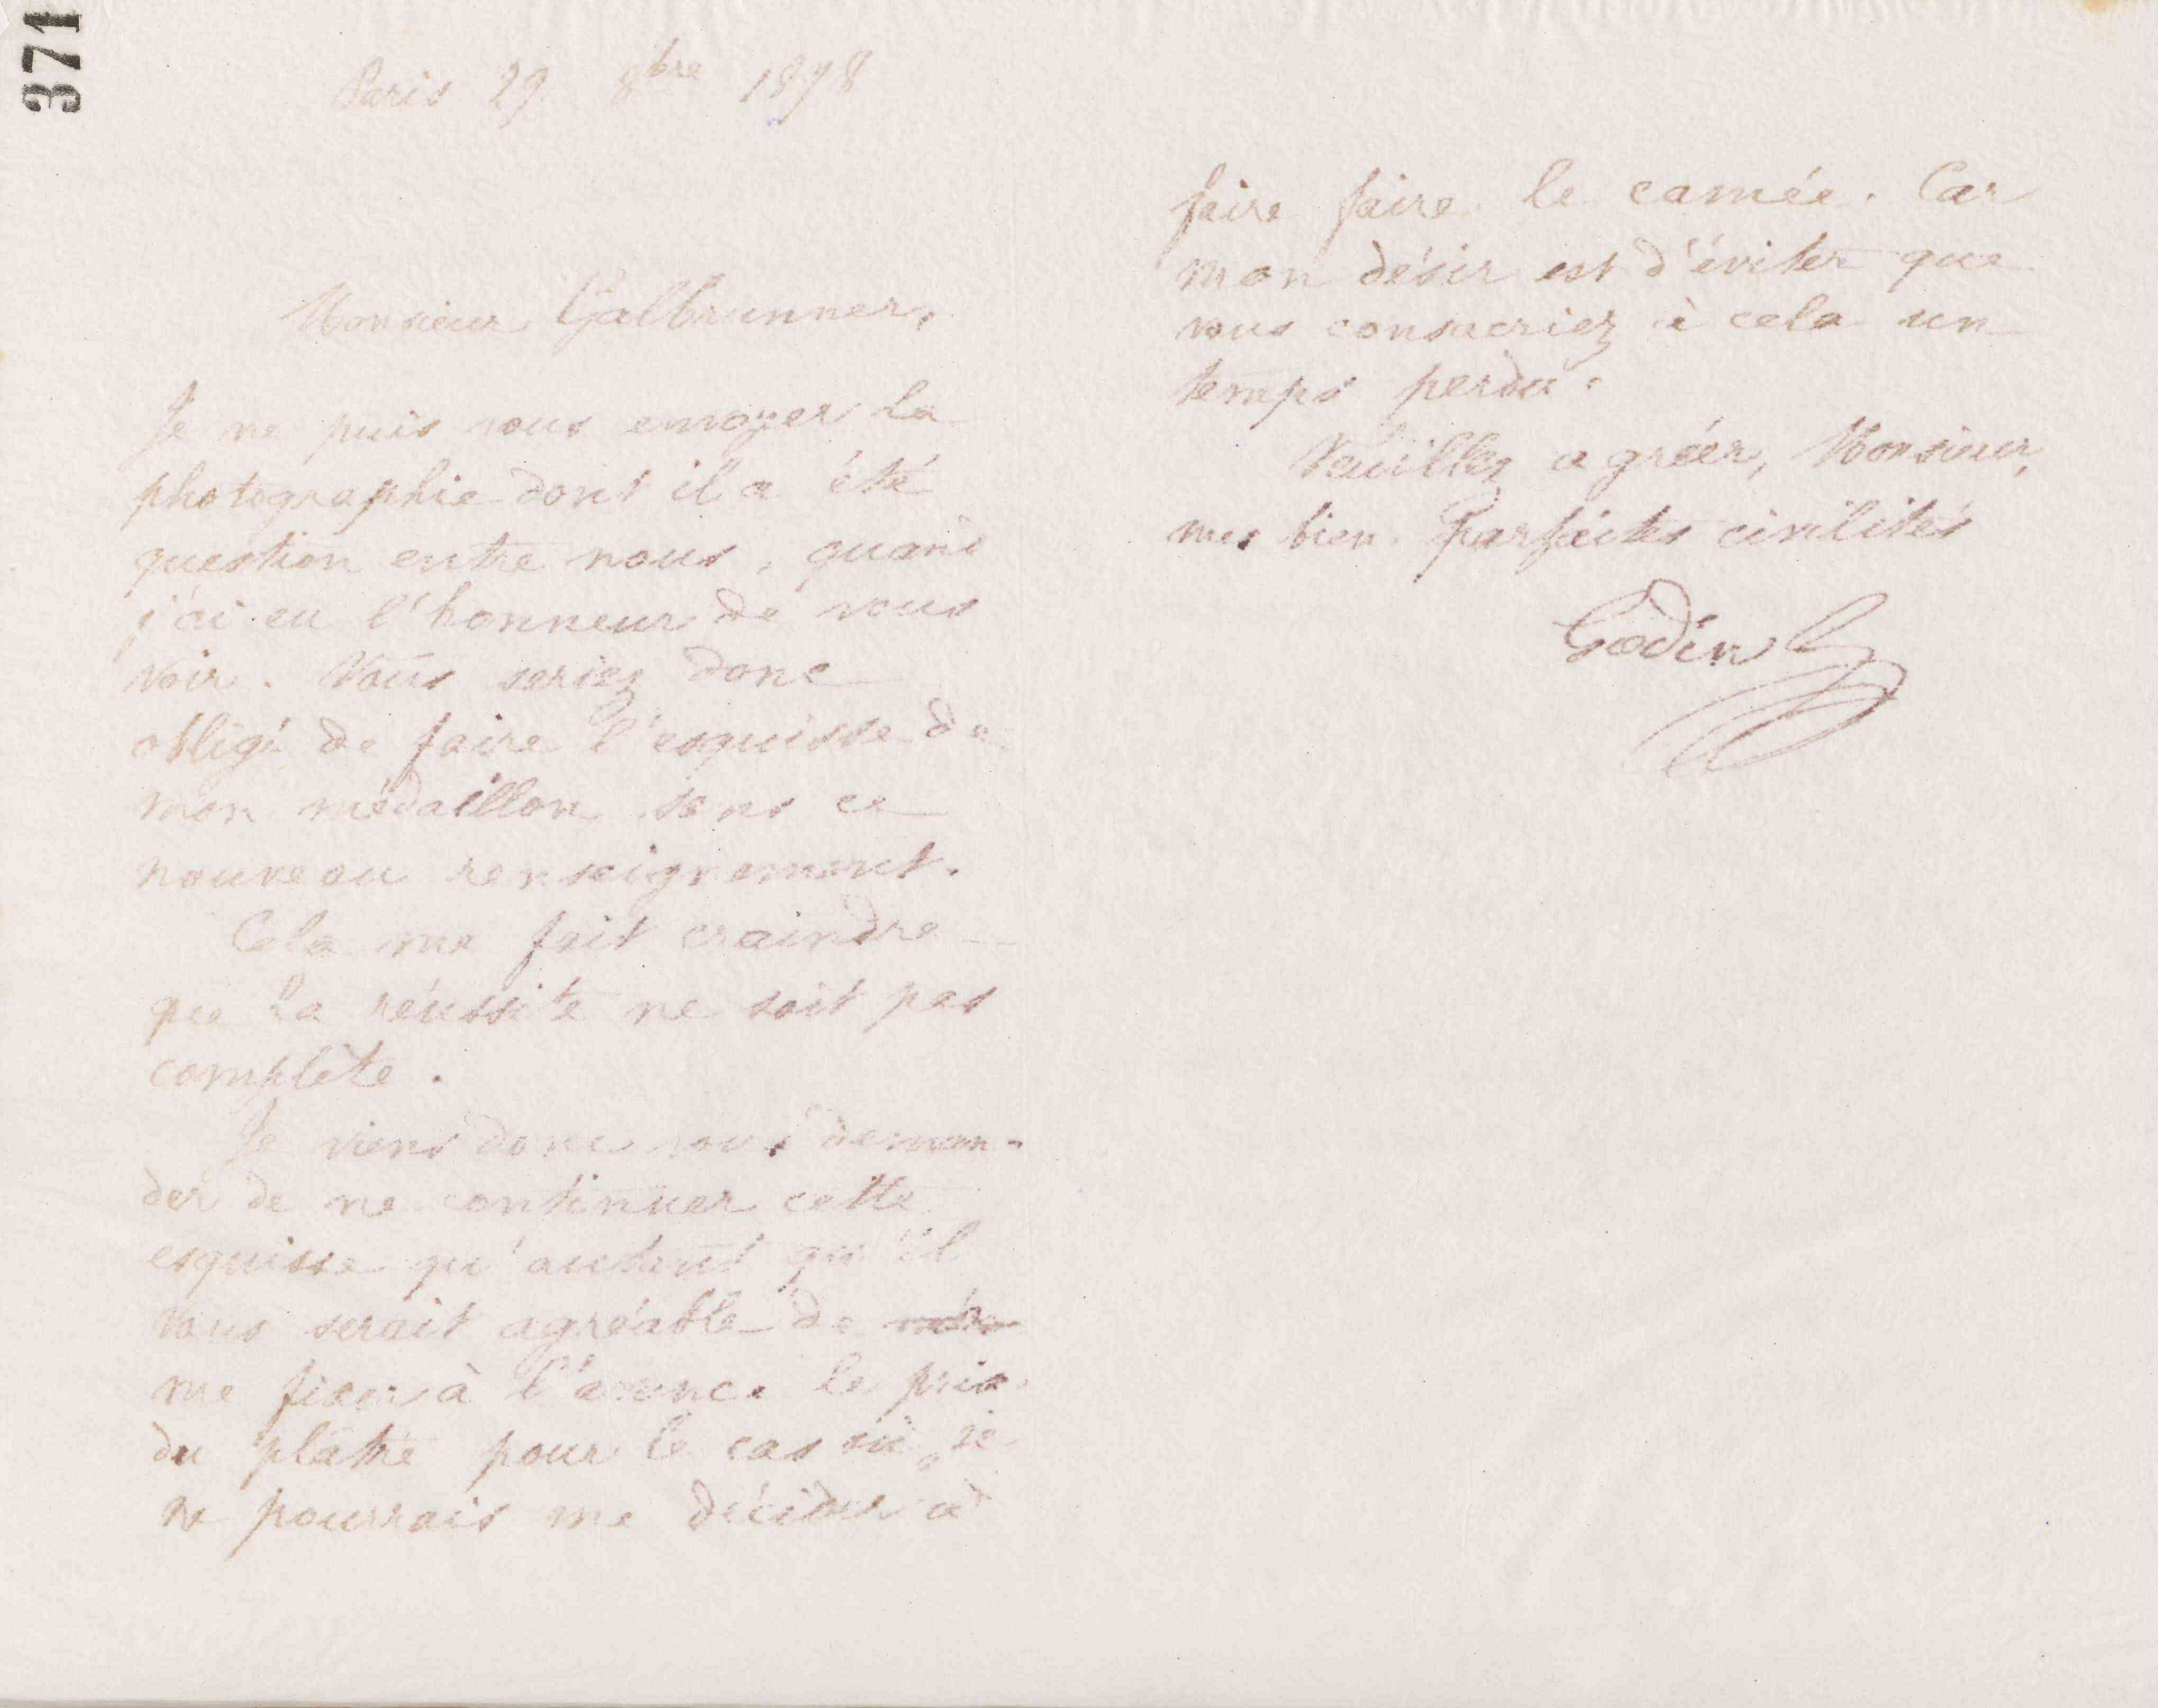 371
Paris 29 8bre 1878
Monsieur Galbrunner,
Je ne puis vous envoyer la
photographie dont il a été
question entre nous, quand
j'ai eu l'honneur de vous
voir. Vous seriez donc
obligé de faire l'esquisse de
mon médaillon sans ce
nouveau renseignement.
Cela me fait craindre
que la réussite ne soit pas
complète.
Je viens donc vous deman-
der de ne continuer cette
esquisse qu'autant qu'il
vous serait agréable de
me fixer à l'avance le prix
du plâtre pour le cas où je
ne pourrais me décider à
faire faire le camée. Car
mon désir est d'éviter que
vous consacriez à cela un
temps perdu.
Veuillez agréer, Monsieur,
mes bien parfaites civilités
Godin